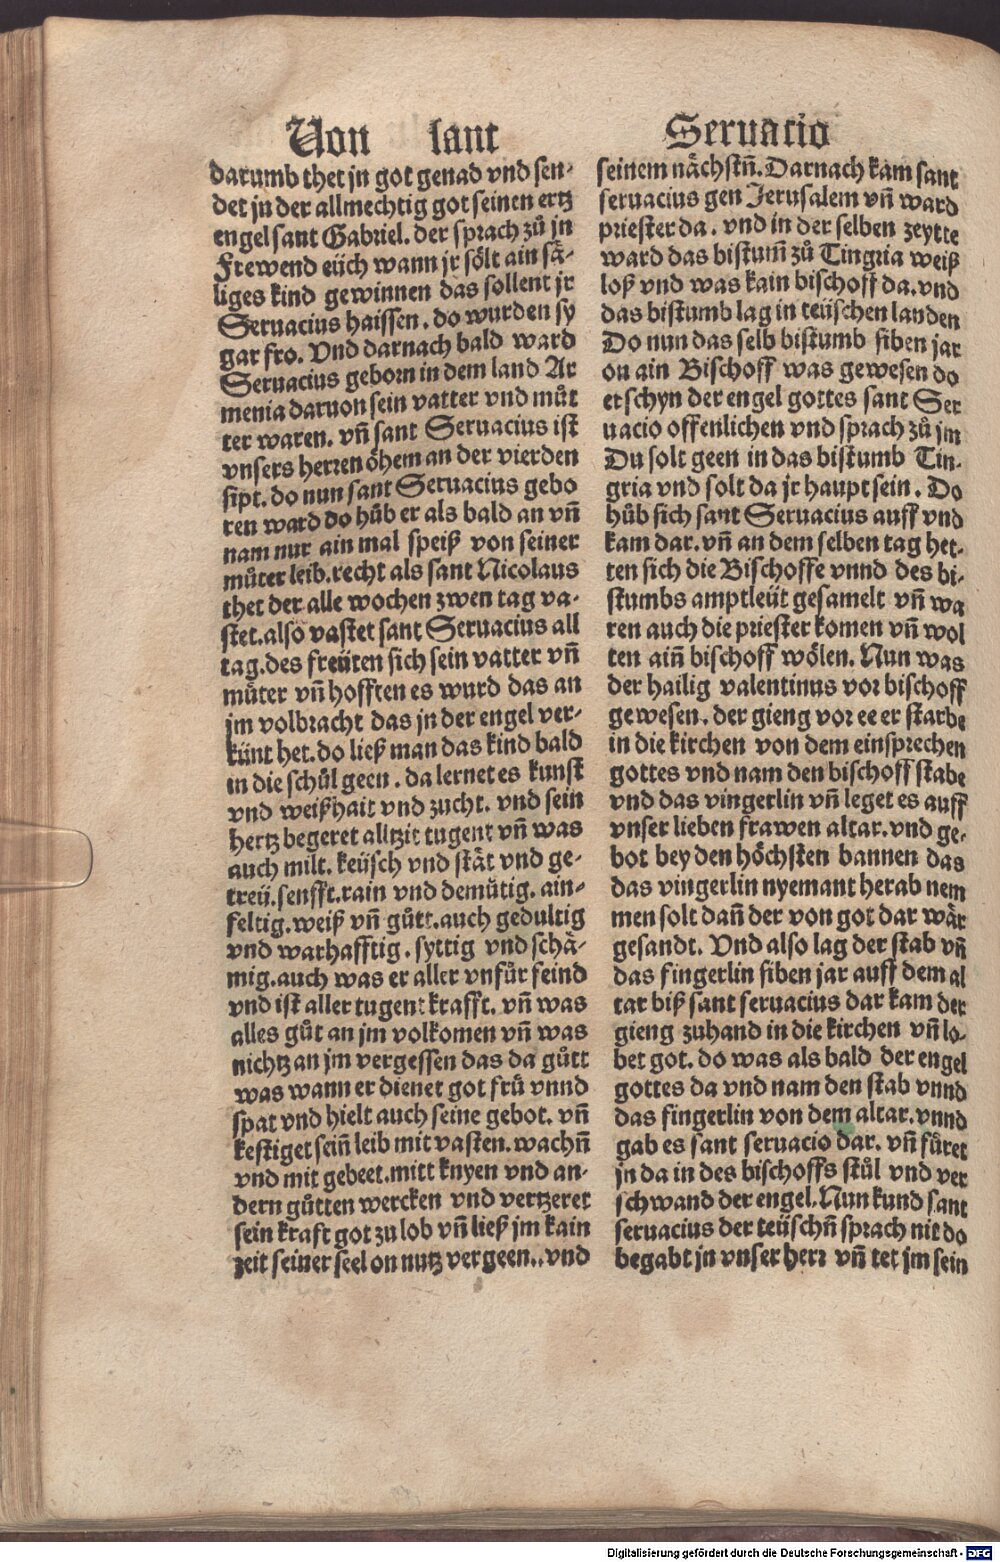 Von sant Seruacio
darumb thet jn got genad vnd sen-
det jn der allmechtig got seinen ertz
engel sant Gabriel. der sprach zů jn
Frewend eüch wann jr sölt ain sä-
liges kind gewinnen das sollent jr
Seruacius haissen. do wurden sy
gar fro. Vnd darnach bald ward
Seruacius geborn in dem land Ar
menia daruon sein vatter vnd můt
ter waren. vn̄ sant Seruacius ist
vnsers herren öhem an der vierden
sipt. do nun sant Seruacius gebo
ren ward do hůb er als bald an vn̄
nam nur ain mal speiß von seiner
můter leib. recht als sant Nicolaus
thet der alle wochen zwen tag va-
stet. also vastet sant Seruacius all
tag. des freüten sich sein vatter vn̄
můter vn̄ hofften es wurd das an
jm volbracht das jn der engel ver-
künt het. do ließ man das kind bald
in die schůl geen. da lernet es kunst
vnd weißhait vnd zucht. vnd sein
hertz begeret alltzit tugent vn̄ was
auch milt. keüsch vnd stät vnd ge-
treü. senfft. rain vnd demütig. ain-
feltig. weiß vn̄ gütt. auch gedultig
vnd warhafftig. syttig vnd schä-
mig. auch was er aller vnfůr feind
vnd ist aller tugent krafft. vn̄ was
alles gůt an jm volkomen vn̄ was
nichtz an jm vergessen das da gůtt
was wann er dienet got frů vnnd
spat vnd hielt auch seine gebot. vn̄
kestiget sein̄ leib mit vasten. wachn̄
vnd mit gebeet. mitt knyen vnd an-
dern gůtten wercken vnd vertzeret
sein kraft got zu lob vn̄ ließ jm kain
zeit seiner seel on nutz vergeen.. vnd
seinem nächstn̄. Darnach kam sant
seruacius gen Jerusalem vn̄ ward
priester da. vnd in der selben zeytte
ward das bistum̄ zů Tingria weiß
loß vnd was kain bischoff da. vnd
das bistumb lag in teüschen landen
Do nun das selb bistumb siben jar
on ain Bischoff was gewesen do
erschyn der engel gottes sant Ser
uacio offenlichen vnd sprach zů jm
Du solt geen in das bistumb Tin-
gria vnd solt da jr haupt sein. Do
hůb sich sant Seruacius auff vnd
kam dar. vn̄ an dem selben tag het-
ten sich die Bischoffe vnnd des bi-
stumbs amptleüt gesamelt vn̄ wa
ren auch die priester komen vn̄ wol
ten ain̄ bischoff wölen. Nun was
der hailig valentinus vor bischoff
gewesen. der gieng vor ee er starbe
in die kirchen von dem einsprechen
gottes vnd nam den bischoff stabe
vnd das vingerlin vn̄ leget es auff
vnser lieben frawen altar. vnd ge-
bot bey den höchsten bannen das
das vingerlin nyemant herab nem
men solt dan̄ der von got dar wär
gesandt. Vnd also lag der stab vn̄
das fingerlin siben jar auff dem al
tar biß sant seruacius dar kam der
gieng zuhand in die kirchen vn̄ lo-
bet got. do was als bald der engel
gottes da vnd nam den stab vnnd
das fingerlin von dem altar. vnnd
gab es sant seruacio dar. vn̄ fůret
jn da in des bischoffs stůl vnd ver
schwand der engel. Nun kund sant
seruacius der teüschn̄ sprach nit do
begabt jn vnser herr vn̄ tet jm sein
Digitalisierung gefördert durch die Deutsche Forschungsgemeinschaft - DFG